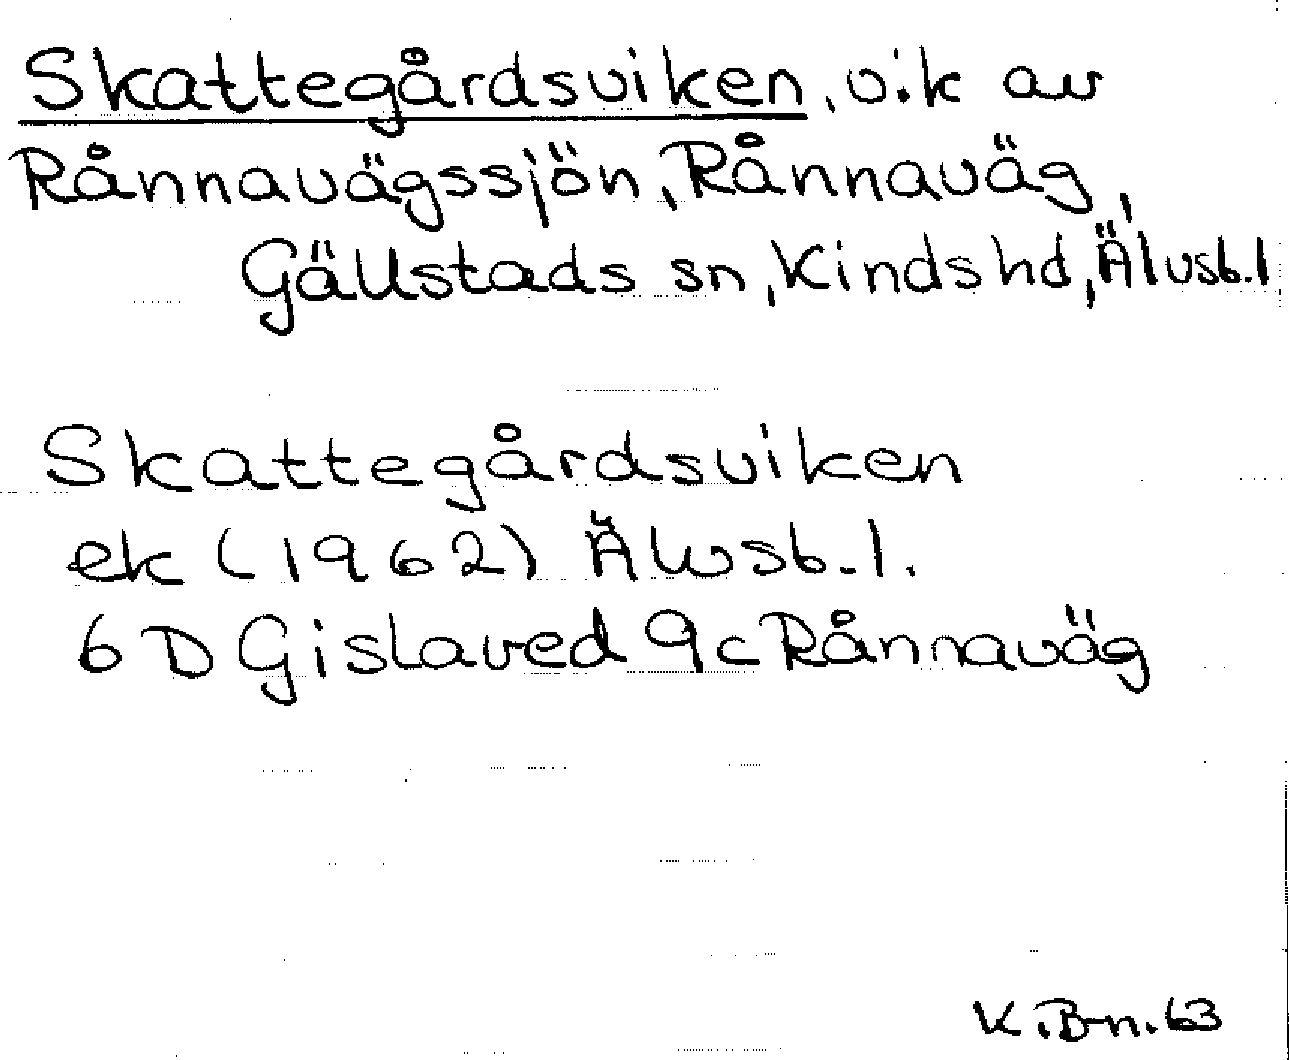 Skattegårdsviken, vik av
Rånnavägssjön, Rånnaväg,
Gällstads sn, Kinds hd, Älvsb. l
Skattegårdsviken
ek (1962) Älvsb. l.
6D Gislaved 9c Rånnaväg
K. B-n. 63